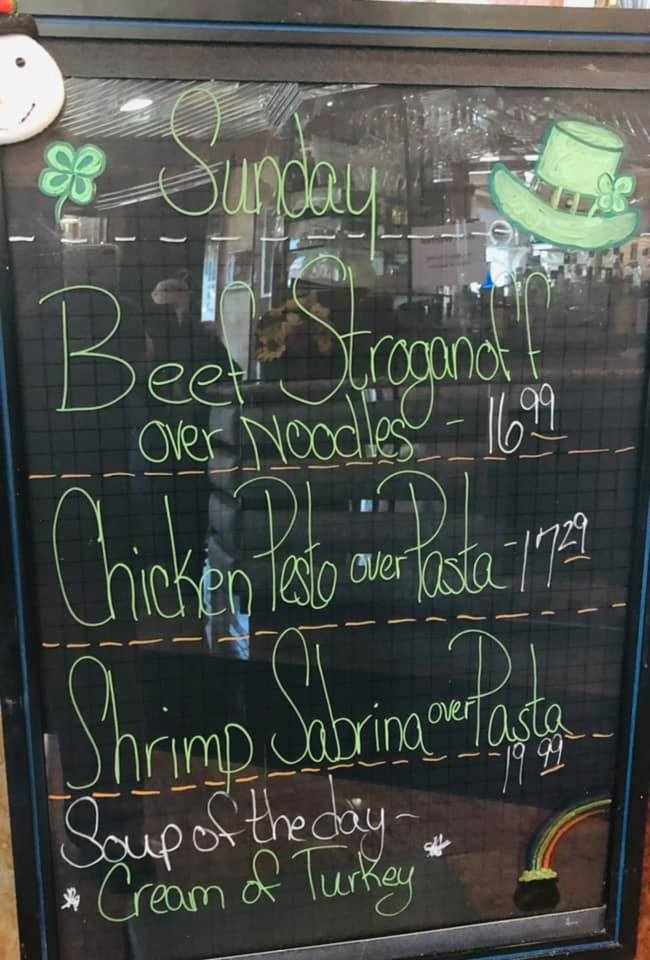 Sunday
Beef Stroganoff
over Noodles - 16.99
Chicken Pesto over Pasta - 17.29
Shrimp Sabrina over Pasta
19.99
Soup of the day -
Cream of Turkey